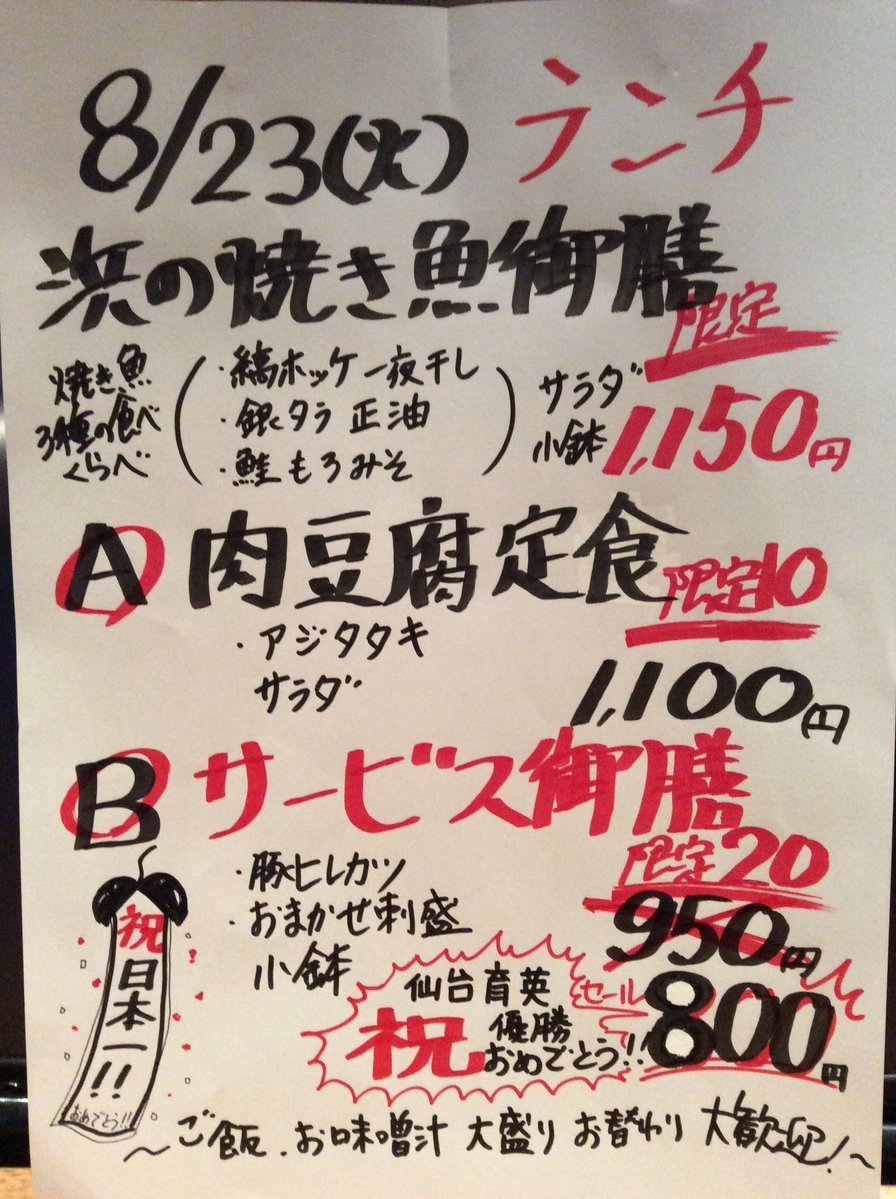 8/23(火) ランチ
浜の焼き魚御膳
限定
焼き魚
3種の食べ
くらべ
・縞ホッケ一夜干し
・銀タラ 正油
・鮭もろみそ
サラダ
小鉢
1,150円
A 肉豆腐定食
限定10
・アジタタキ
サラダ
1,100円
B サービス御膳
限定20
・豚ヒレカツ
・おまかせ刺盛
小鉢
950円
セール
800円
仙台育英
祝 優勝
おめでとう!!
祝日本一!!
おめでとう!!
〜ご飯、お味噌汁 大盛り お替わり 大歓迎!〜